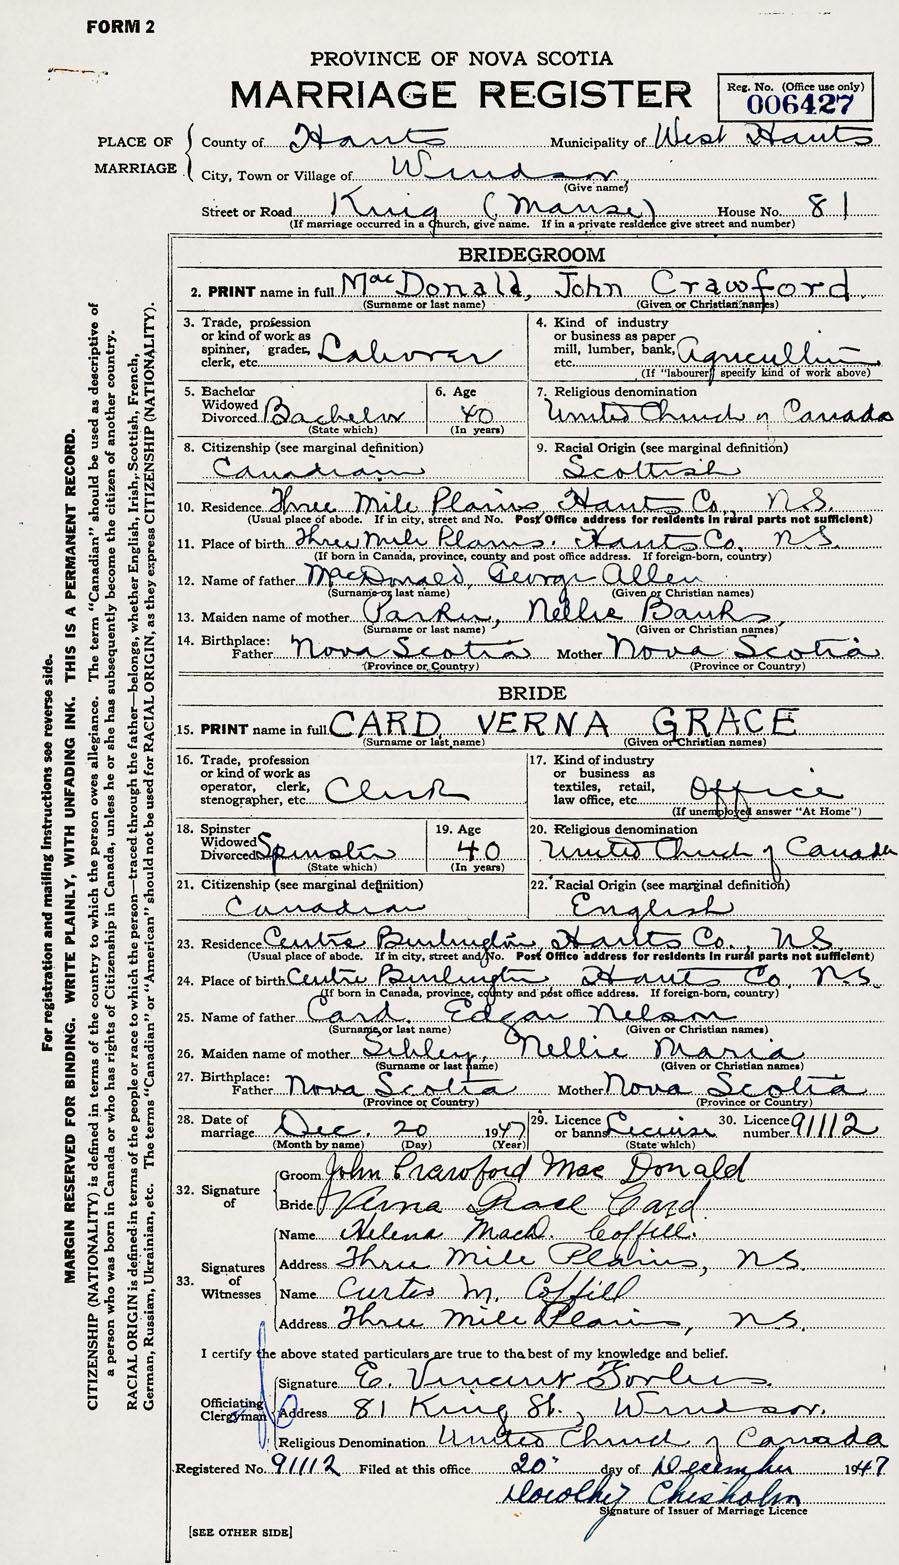 FORM 2
PROVINCE OF NOVA SCOTIA
MARRIAGE REGISTER
Reg. No. (Office use only)
006427
PLACE OF MARRIAGE
County of Hants Municipality of West Hants
City, Town or Village of Windsor
(Give name)
Street or Road King (Manse) House No. 81
(If marriage occurred in a Church, give name. If in a private residence give street and number)
BRIDEGROOM
2. PRINT name in full MacDonald, John Crawford
(Surname or last name) (Given or Christian names)
3. Trade, profession or kind of work as spinner, grader, clerk, etc. Laborer
4. Kind of industry or business as paper mill, lumber, bank, etc. Agriculture
(If "labourer" specify kind of work above)
5. Bachelor Widowed Divorced Bachelor
(State which)
6. Age 40
(In years)
7. Religious denomination
United Church of Canada
8. Citizenship (see marginal definition)
Canadian
9. Racial Origin (see marginal definition)
Scottish
10. Residence Three Mile Plains, Hants Co., N.S.
(Usual place of abode. If in city, street and No. Post Office address for residents in rural parts not sufficient)
11. Place of birth Three Mile Plains. Hants Co., N.S.
(If born in Canada, province, county and post office address. If foreign-born, country)
12. Name of father MacDonald, George Allen
(Surname or last name) (Given or Christian names)
13. Maiden name of mother Parker, Nellie Banks,
(Surname or last name) (Given or Christian names)
14. Birthplace:
Father Nova Scotia Mother Nova Scotia
(Province or Country) (Province or Country)
BRIDE
15. PRINT name in full CARD VERNA GRACE
(Surname or last name) (Given or Christian names)
16. Trade, profession or kind of work as operator, clerk, stenographer, etc. Clerk
17. Kind of industry or business as textiles, retail, law office, etc. Office
(If unemployed answer "At Home")
18. Spinster Widowed Divorced Spinster
(State which)
19. Age 40
(In years)
20. Religious denomination
United Church of Canada
21. Citizenship (see marginal definition)
Canadian
22. Racial Origin (see marginal definition)
English
23. Residence Centre Burlington, Hants Co., N.S.
(Usual place of abode. If in city, street and No. Post Office address for residents in rural parts not sufficient)
24. Place of birth Centre Burlington Hants Co, N.S.
(If born in Canada, province, county and post office address. If foreign-born, country)
25. Name of father Card, Edgar Nelson
(Surname or last name) (Given or Christian names)
26. Maiden name of mother Sibley, Nellie Maria
(Surname or last name) (Given or Christian names)
27. Birthplace:
Father Nova Scotia Mother Nova Scotia
(Province or Country) (Province or Country)
28. Date of marriage Dec. 20 1947
(Month by name) (Day) (Year)
29. Licence or banns License
(State which)
30. Licence number 91112
32. Signature of
Groom John Crawford MacDonald
Bride Verna Grace Card
33. Signatures of Witnesses
Name Helena MacD. Coffill.
Address Three Mile Plains, N.S.
Name Curtis M. Coffill
Address Three Mile Plains, N.S.
I certify the above stated particulars are true to the best of my knowledge and belief.
Officiating Clergyman
Signature E. Vincent Forbes.
Address 81 King St., Windsor.
Religious Denomination United Church of Canada
Registered No. 91112 Filed at this office 20" day of December 1947
Dorothy Chisholm
Signature of Issuer of Marriage Licence
[SEE OTHER SIDE]
For registration and mailing instructions see reverse side.
MARGIN RESERVED FOR BINDING. WRITE PLAINLY, WITH UNFADING INK. THIS IS A PERMANENT RECORD.
CITIZENSHIP (NATIONALITY) is defined in terms of the country to which the person owes allegiance. The term "Canadian" should be used as descriptive of
a person who was born in Canada or who has rights of Citizenship in Canada, unless he or she has subsequently become the citizen of another country.
RACIAL ORIGIN is defined in terms of the people or race to which the person—traced through the father—belongs, whether English, Irish, Scottish, French,
German, Russian, Ukrainian, etc. The terms "Canadian" or "American" should not be used for RACIAL ORIGIN, as they express CITIZENSHIP (NATIONALITY).